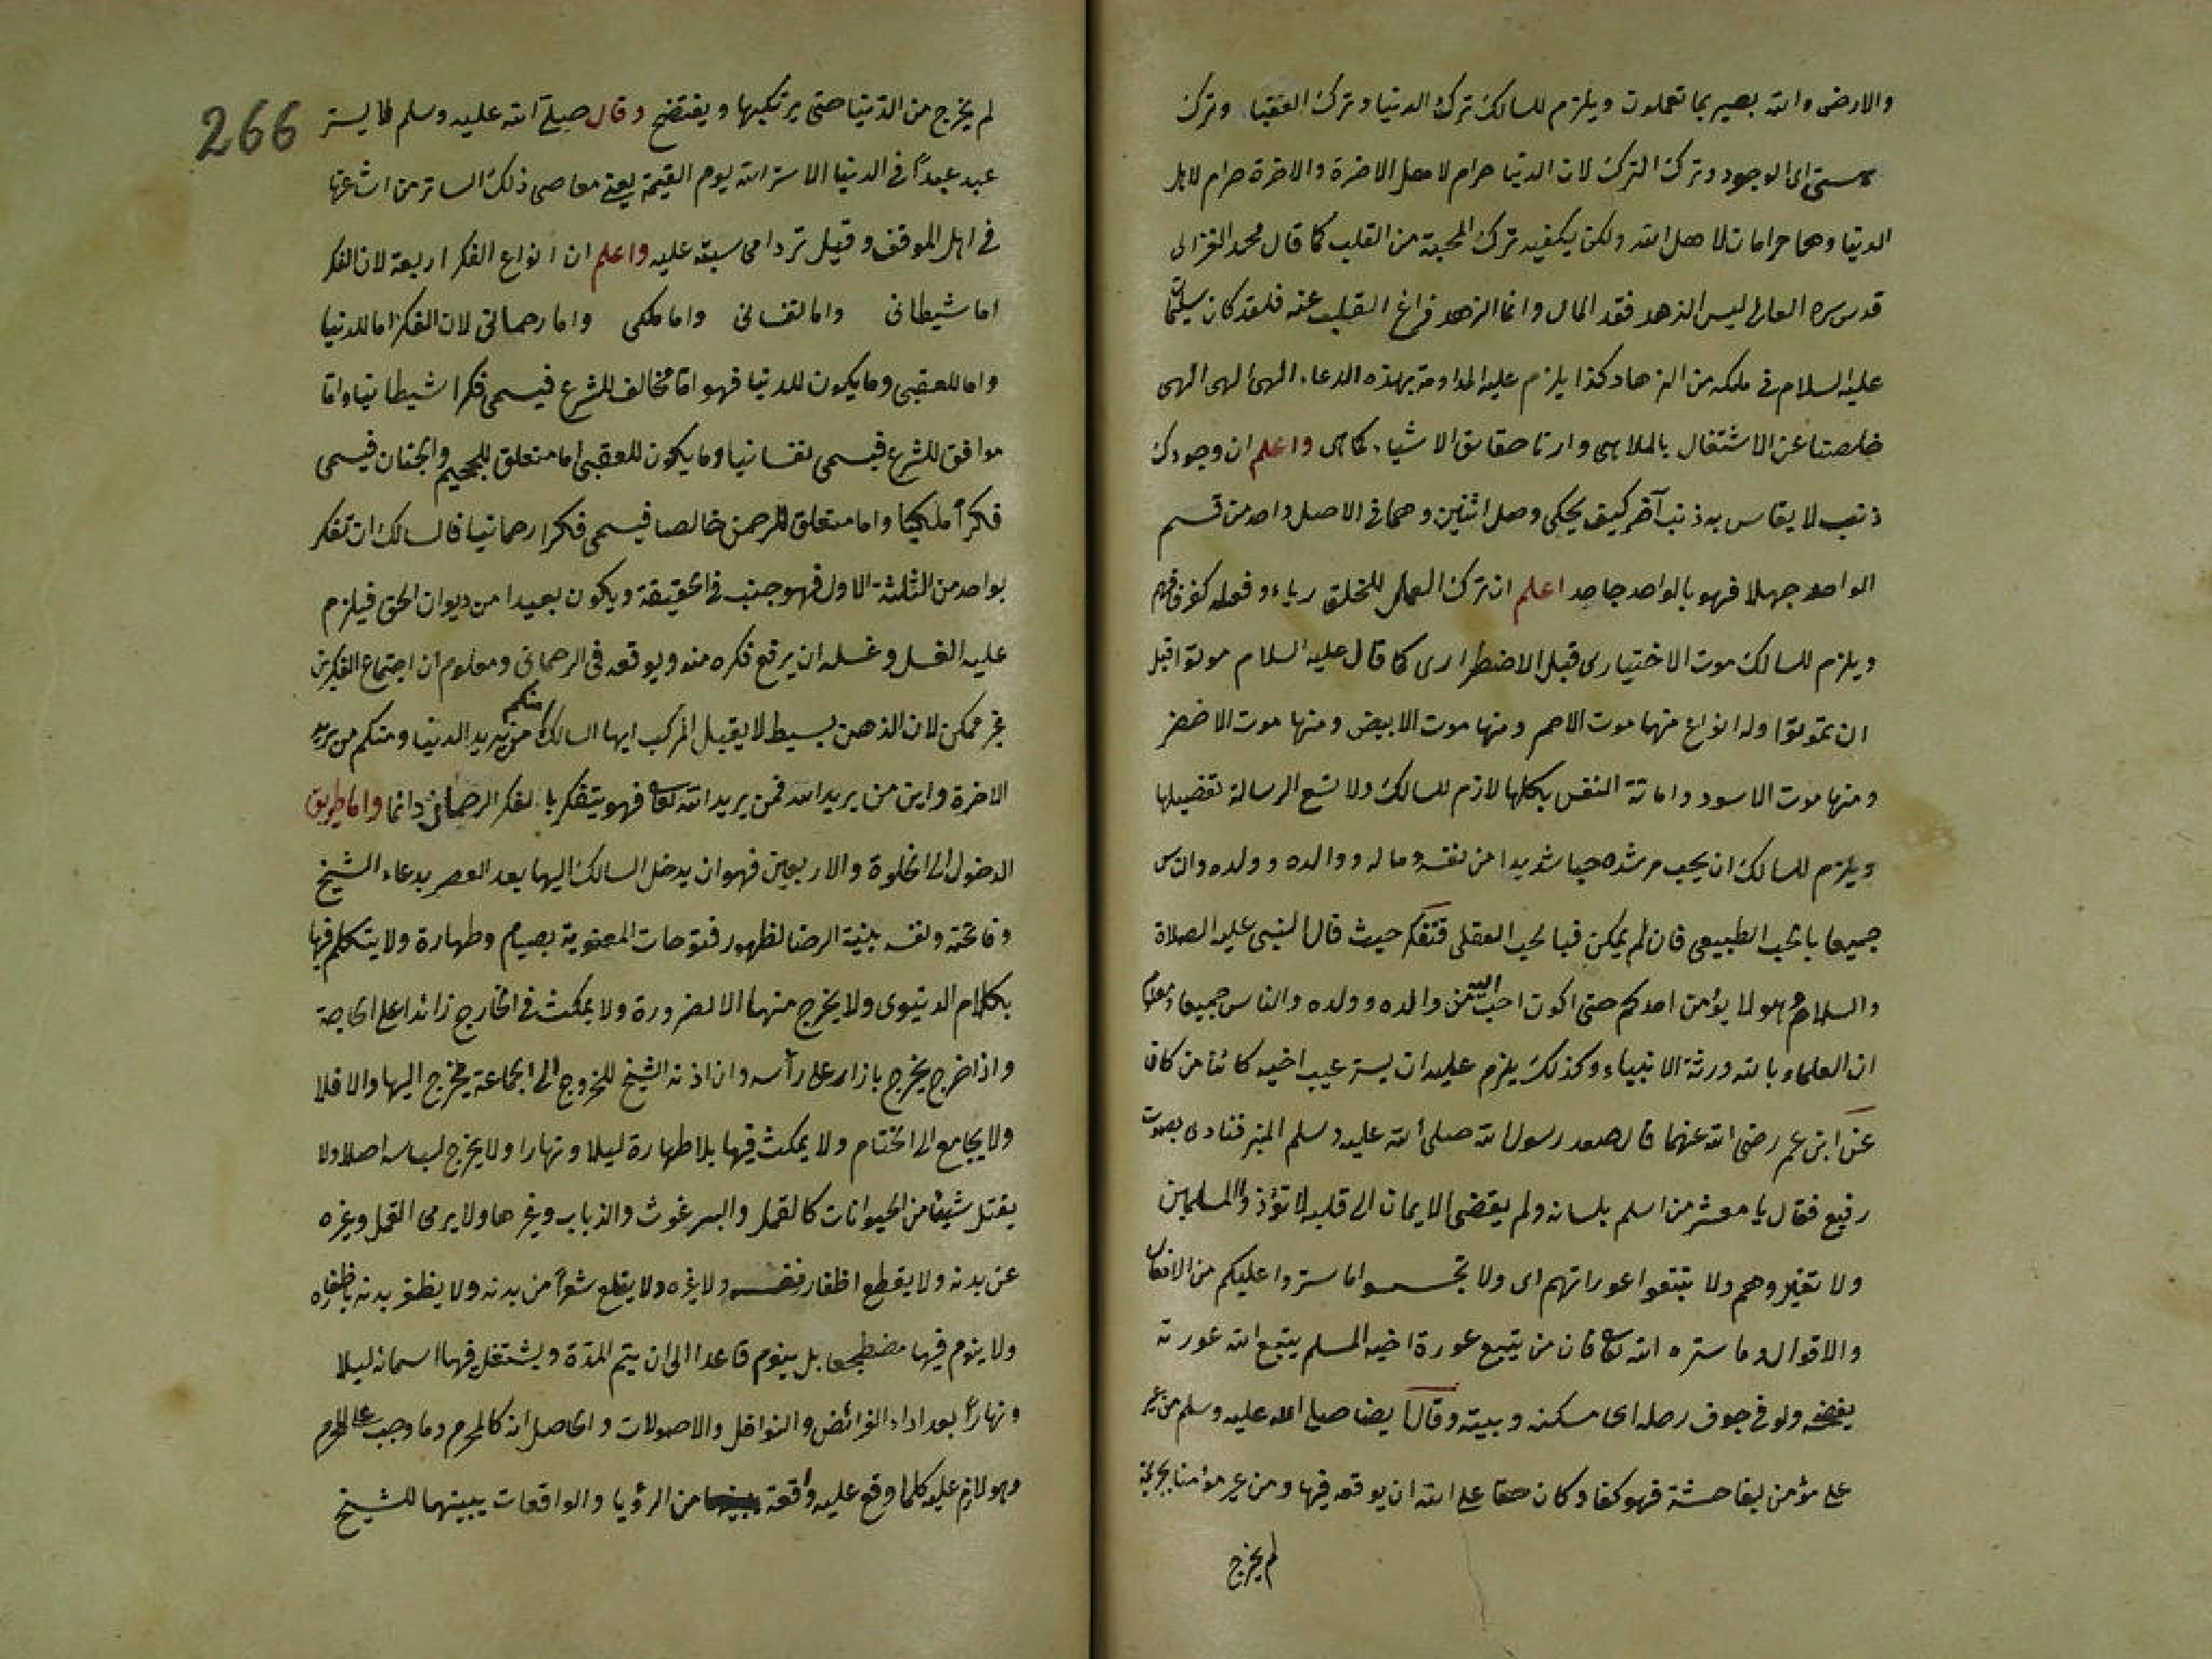 والارض والله بصير بما تعملون ويلزم للسالك ترك الدنيا وترك العقبا وترك
هستى اى الوجود وترك الترك لان الدنيا حرام لاهل الاخرة والاخرة حرام لاهل
الدنيا وهما حرامان لاهل الله ولكن يكفيه ترك المحبة من القلب كما قال محمد الغزالى
قدس سره العالى ليس الزهد فقد المال وانما الزهد فراغ القلب عنه فلقد كان سليمان
عليه السلام فى ملكه من الزهاد كذا يلزم عليه المداومة بهذه الدعاء الهى الهى الهى
خلصنا عن الاشتغال بالملاهى وارنا حقايق الاشياء كماهى واعلم ان وجودك
ذنب لا يقاس به ذنب آخر كيف يحكى وصل اثنين وهما فى الاصل واحد من قسم
الواحد جهلا فهو بالواحد جاحد اعلم ان ترك العمل للخلق رياء وفعله كفر فافهم
ويلزم للسالك موت الاختيارى قبل الاضطرارى كما قال عليه السلام موتوا قبل
ان تموتوا وله انواع منها موت الاحمر ومنها موت الابيض ومنها موت الاخضر
ومنها موت الاسود واماتة النفس بكلها لازم للسالك ولا تسع الرسالة تفصيلها
ويلزم للسالك ان يحب مرشده حبا شديدا من نفسه وماله ووالده وولده والناس
جميعا بالحب الطبيعى فان لم يمكن فبالحب العقلى فتفكر حيث قال النبى عليه الصلاة
والسلام وهو لا يؤمن احدكم حتى اكون احب اليه من والده وولده والناس جميعا ومعلوم
ان العلماء بالله ورثة الانبياء وكذلك يلزم عليه ان يستر عيب اخيه كائنا من كان
عن ابن عمر رضى الله عنهما قال صعد رسول الله صلى الله عليه وسلم المنبر فنادى بصوت
رفيع فقال يا معشر من اسلم بلسانه ولم يفضى الايمان الى قلبه لا تؤذوا المسلمين
ولا تعيروهم ولا تتبعوا عوراتهم اى ولا تجسسوا ما ستروا عليكم من الافعال
والاقوال وما ستره الله تعالى فان من يتبع عورة اخيه المسلم يتبع الله عورته
يفضحه ولو فى جوف رحله اى مسكنه وبيته وقال ايضا صلى الله عليه وسلم من عير
على مؤمن بفاحشة فهو كفا وكان حقا على الله ان يوقعه فيها ومن عير مؤمنا بجريمة
لم يخرج
266
لم يخرج من الدنيا حتى يرتكبها ويفتضح وقال صلى الله عليه وسلم لا يستر
عبد عبدا فى الدنيا الا ستر الله يوم القيمة يعنى معاصى ذلك الساتر من اشاعتها
فى اهل الموقف وقيل ترد محاسبة عليه واعلم ان انواع الفكر اربعة لان الفكر
اما شيطانى واما نفسانى واما ملكى واما رحمانى لان الفكر اما للدنيا
واما للعقبى وما يكون للدنيا فهو اما مخالف للشرع فيسمى فكرا شيطانيا واما
موافق للشرع فيسمى نفسانيا وما يكون للعقبى اما متعلق للجحيم والجنان فيسمى
فكرا ملكيا واما متعلق للرحمن خالصا فيسمى فكرا رحمانيا فالسالك ان تفكر
بواحد من الثلثة الاول فهو جنب فى الحقيقة ويكون بعيدا من ديوان الحق فيلزم
عليه الغسل وغسله ان يرفع فكره منه ويوقعه فى الرحمانى ومعلوم ان اجتماع الفكرين
غير ممكن لان الذهن بسيط لا يقبل المركب ايها السالك منكم من يريد الدنيا ومنكم من يريد
الاخرة واين من يريد الله فمن يريد الله تعالى فهو يتفكر بالفكر الرحمانى دائما واما طريق
الدخول الى الخلوة والاربعين فهو ان يدخل السالك اليها بعد العصر بدعاء الشيخ
وفاتحته ونفسه بنية الرضا لظهور فتوحات المعنوية بصيام وطهارة ولا يتكلم فيها
بكلام الدنيوى ولا يخرج منها الا لضرورة ولا يمكث فى الخارج زائدا على الحاجة
واذا خرج يخرج بازار على رأسه وان اذنه الشيخ للخروج الى الجماعة يخرج اليها والا فلا
ولا يجامع الى الختام ولا يمكث فيها بلا طهارة ليلا ونهارا ولا يخرج لباسه اصلا ولا
يقتل شيئا من الحيوانات كالقمل والبرغوث والذباب وغيرها ولا يرمى القمل وغيره
عن بدنه ولا يقطع اظفار نفسه ولا غيره ولا يقلع شعرا من بدنه ولا بدنه باظفاره
ولا ينوم فيها مضطجعا بل ينوم قاعدا الى ان يتم المدة ويشتغل فيها اسمائه ليلا
ونهارا بعد اداء الفرائض والنوافل والاصولات والحاصل انه كالمحرم وما وجب على المحرم
وهو لازم عليه كلما وقع عليه واقعة من الرؤيا والواقعات يبينهما للشيخ